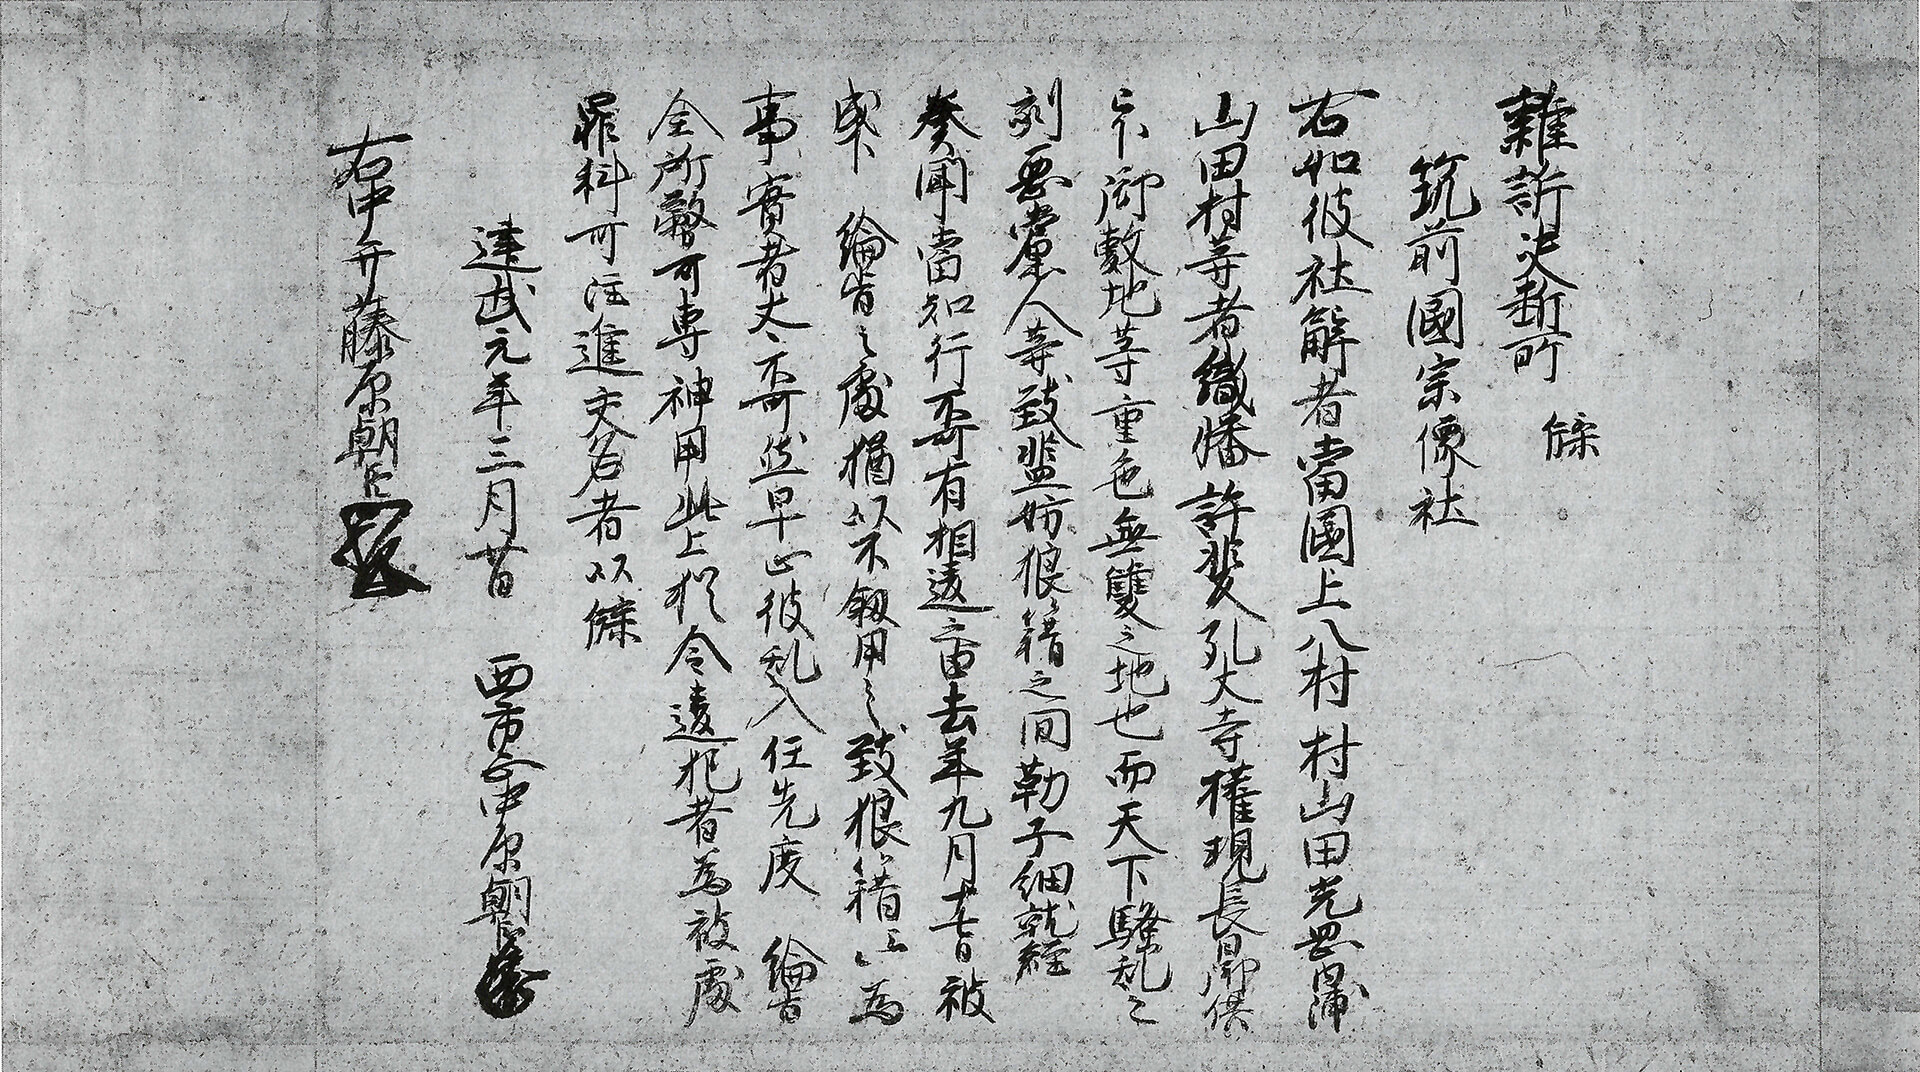 雑訴决断所 牒
筑前國宗像社
右如彼社解者當國上八村村山田光岡内蒲
山田村等者織幡許斐孔大寺権現長日御供
下御敷地等重色無雙之地也而天下騒乱之
刻悪黨人等致監妨狼籍之間勒子細就経
奏聞當知行不可有相違之由去年九月廿日被
成下 綸旨之處猶以不叙用之致狼籍云々為
事實者太不可然早止彼乱入任先度 綸旨
全所務可専神用此上猶令違犯者為被處
罪科可注進交名者以牒
建武元年三月廿日 西市正中原朝臣
右中弁藤原朝臣